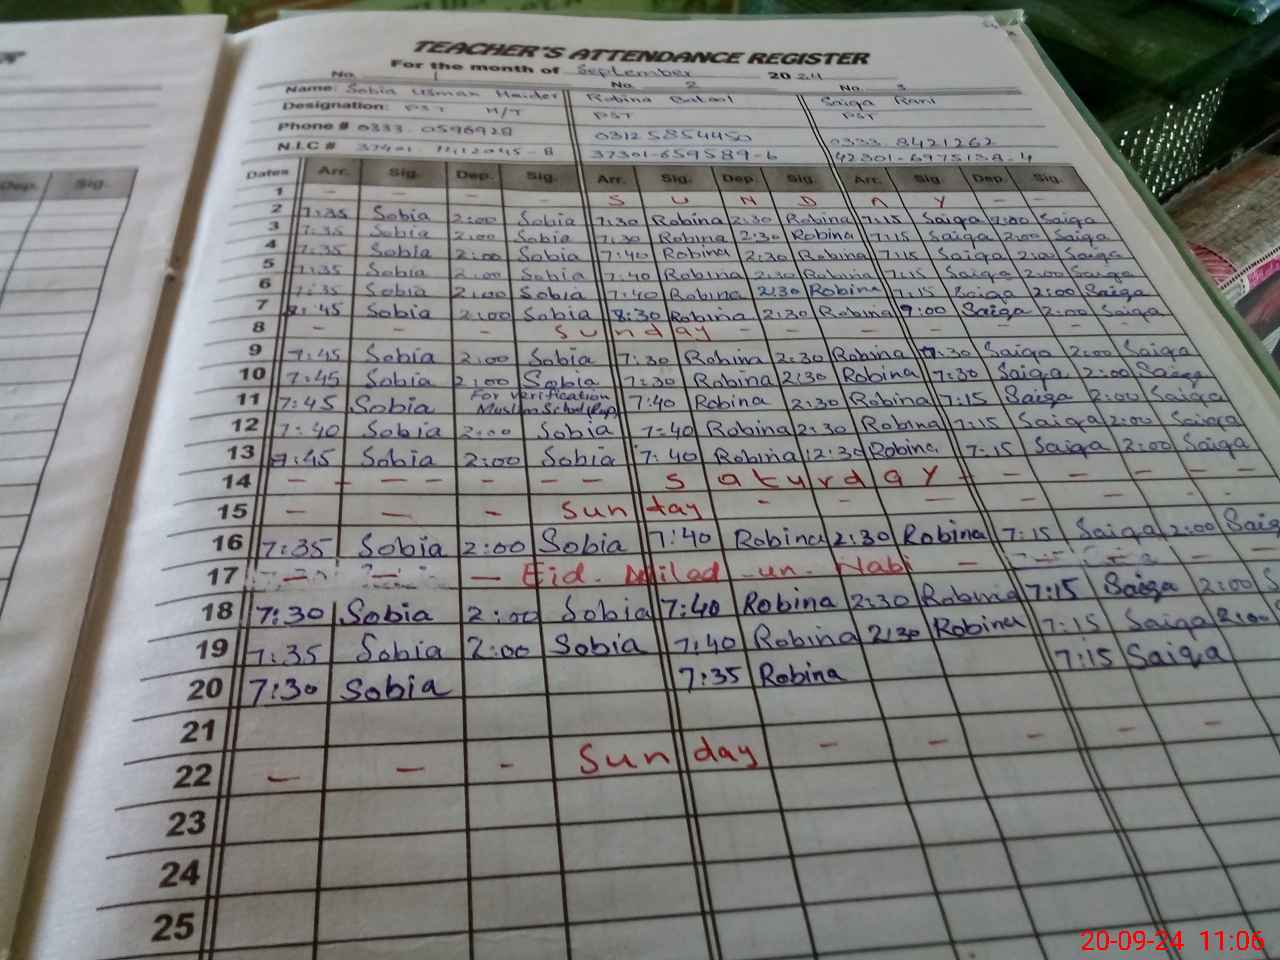 TEACHER'S ATTENDANCE REGISTER
For the month of September 2024
No. 1 No. 2 No. 3
Name: Sobia Usman Haider Robina Batool Saiqa Rani
Designation: PST H/T PST PST
Phone # 0333-0596928 03125854450 0333-8421262
N.I.C #
Dates Arr. Sig. Dep. Sig. Arr. Sig. Dep. Sig. Arr. Sig. Dep. Sig.
Dep. Sig.
1 - - - - S U N D A Y - -
2 7:35 Sobia 2:00 Sobia 7:30 Robina 2:30 Robina 7:15 Saiqa 2:00 Saiqa
3 7:35 Sobia 2:00 Sobia 7:30 Robina 2:30 Robina 7:15 Saiqa 2:00 Saiqa
4 7:35 Sobia 2:00 Sobia 7:40 Robina 2:30 Robina 7:15 Saiqa 2:00 Saiqa
5 7:35 Sobia 2:00 Sobia 7:40 Robina 2:30 Robina 7:15 Saiqa 2:00 Saiqa
6 7:35 Sobia 2:00 Sobia 7:40 Robina 2:30 Robina 7:15 Saiqa 2:00 Saiqa
7 :45 Sobia 2:00 Sobia 8:30 Robina 2:30 Robina 9:00 Saiqa 2:00 Saiqa
8 - - - Sunday - - - - - -
9 7:45 Sobia 2:00 Sobia 7:30 Robina 2:30 Robina 7:30 Saiqa 2:00 Saiqa
10 7:45 Sobia 2:00 Sobia 7:30 Robina 2:30 Robina 7:30 Saiqa 2:00 Saiqa
11 7:45 Sobia For verification 7:40 Robina 2:30 Robina 7:15 Saiqa 2:00 Saiqa
12 7:40 Sobia 2:00 Sobia 7:40 Robina 2:30 Robina 7:15 Saiqa 2:00 Saiqa
13 7:45 Sobia 2:00 Sobia 7:40 Robina 2:30 Robina 7:15 Saiqa 2:00 Saiqa
14 - - - - - - Saturday - - - - -
15 - - - Sunday - - - - - -
16 7:35 Sobia 2:00 Sobia 7:40 Robina 2:30 Robina 7:15 Saiqa 2:00 Saiq
17 - - - Eid Milad-un-Nabi - - - -
18 7:30 Sobia 2:00 Sobia 7:40 Robina 2:30 Robina 7:15 Saiqa 2:00 S
19 7:35 Sobia 2:00 Sobia 7:40 Robina 2:30 Robina 7:15 Saiqa 2:00
20 7:30 Sobia 7:35 Robina 7:15 Saiqa
21
22 - - - Sunday - - - - -
23
24
25
20-09-24 11:06